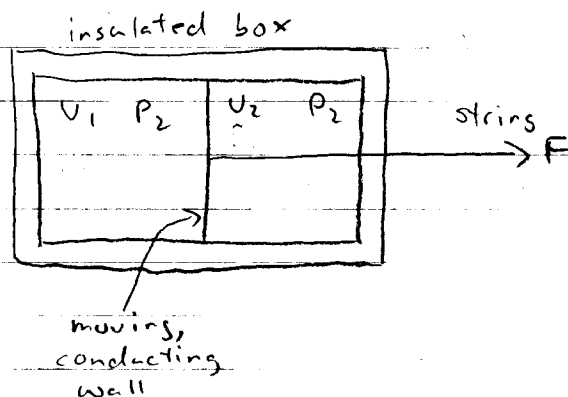 insulated box
U₁ P₂ U₂ P₂
string
F
moving,
conducting
wall